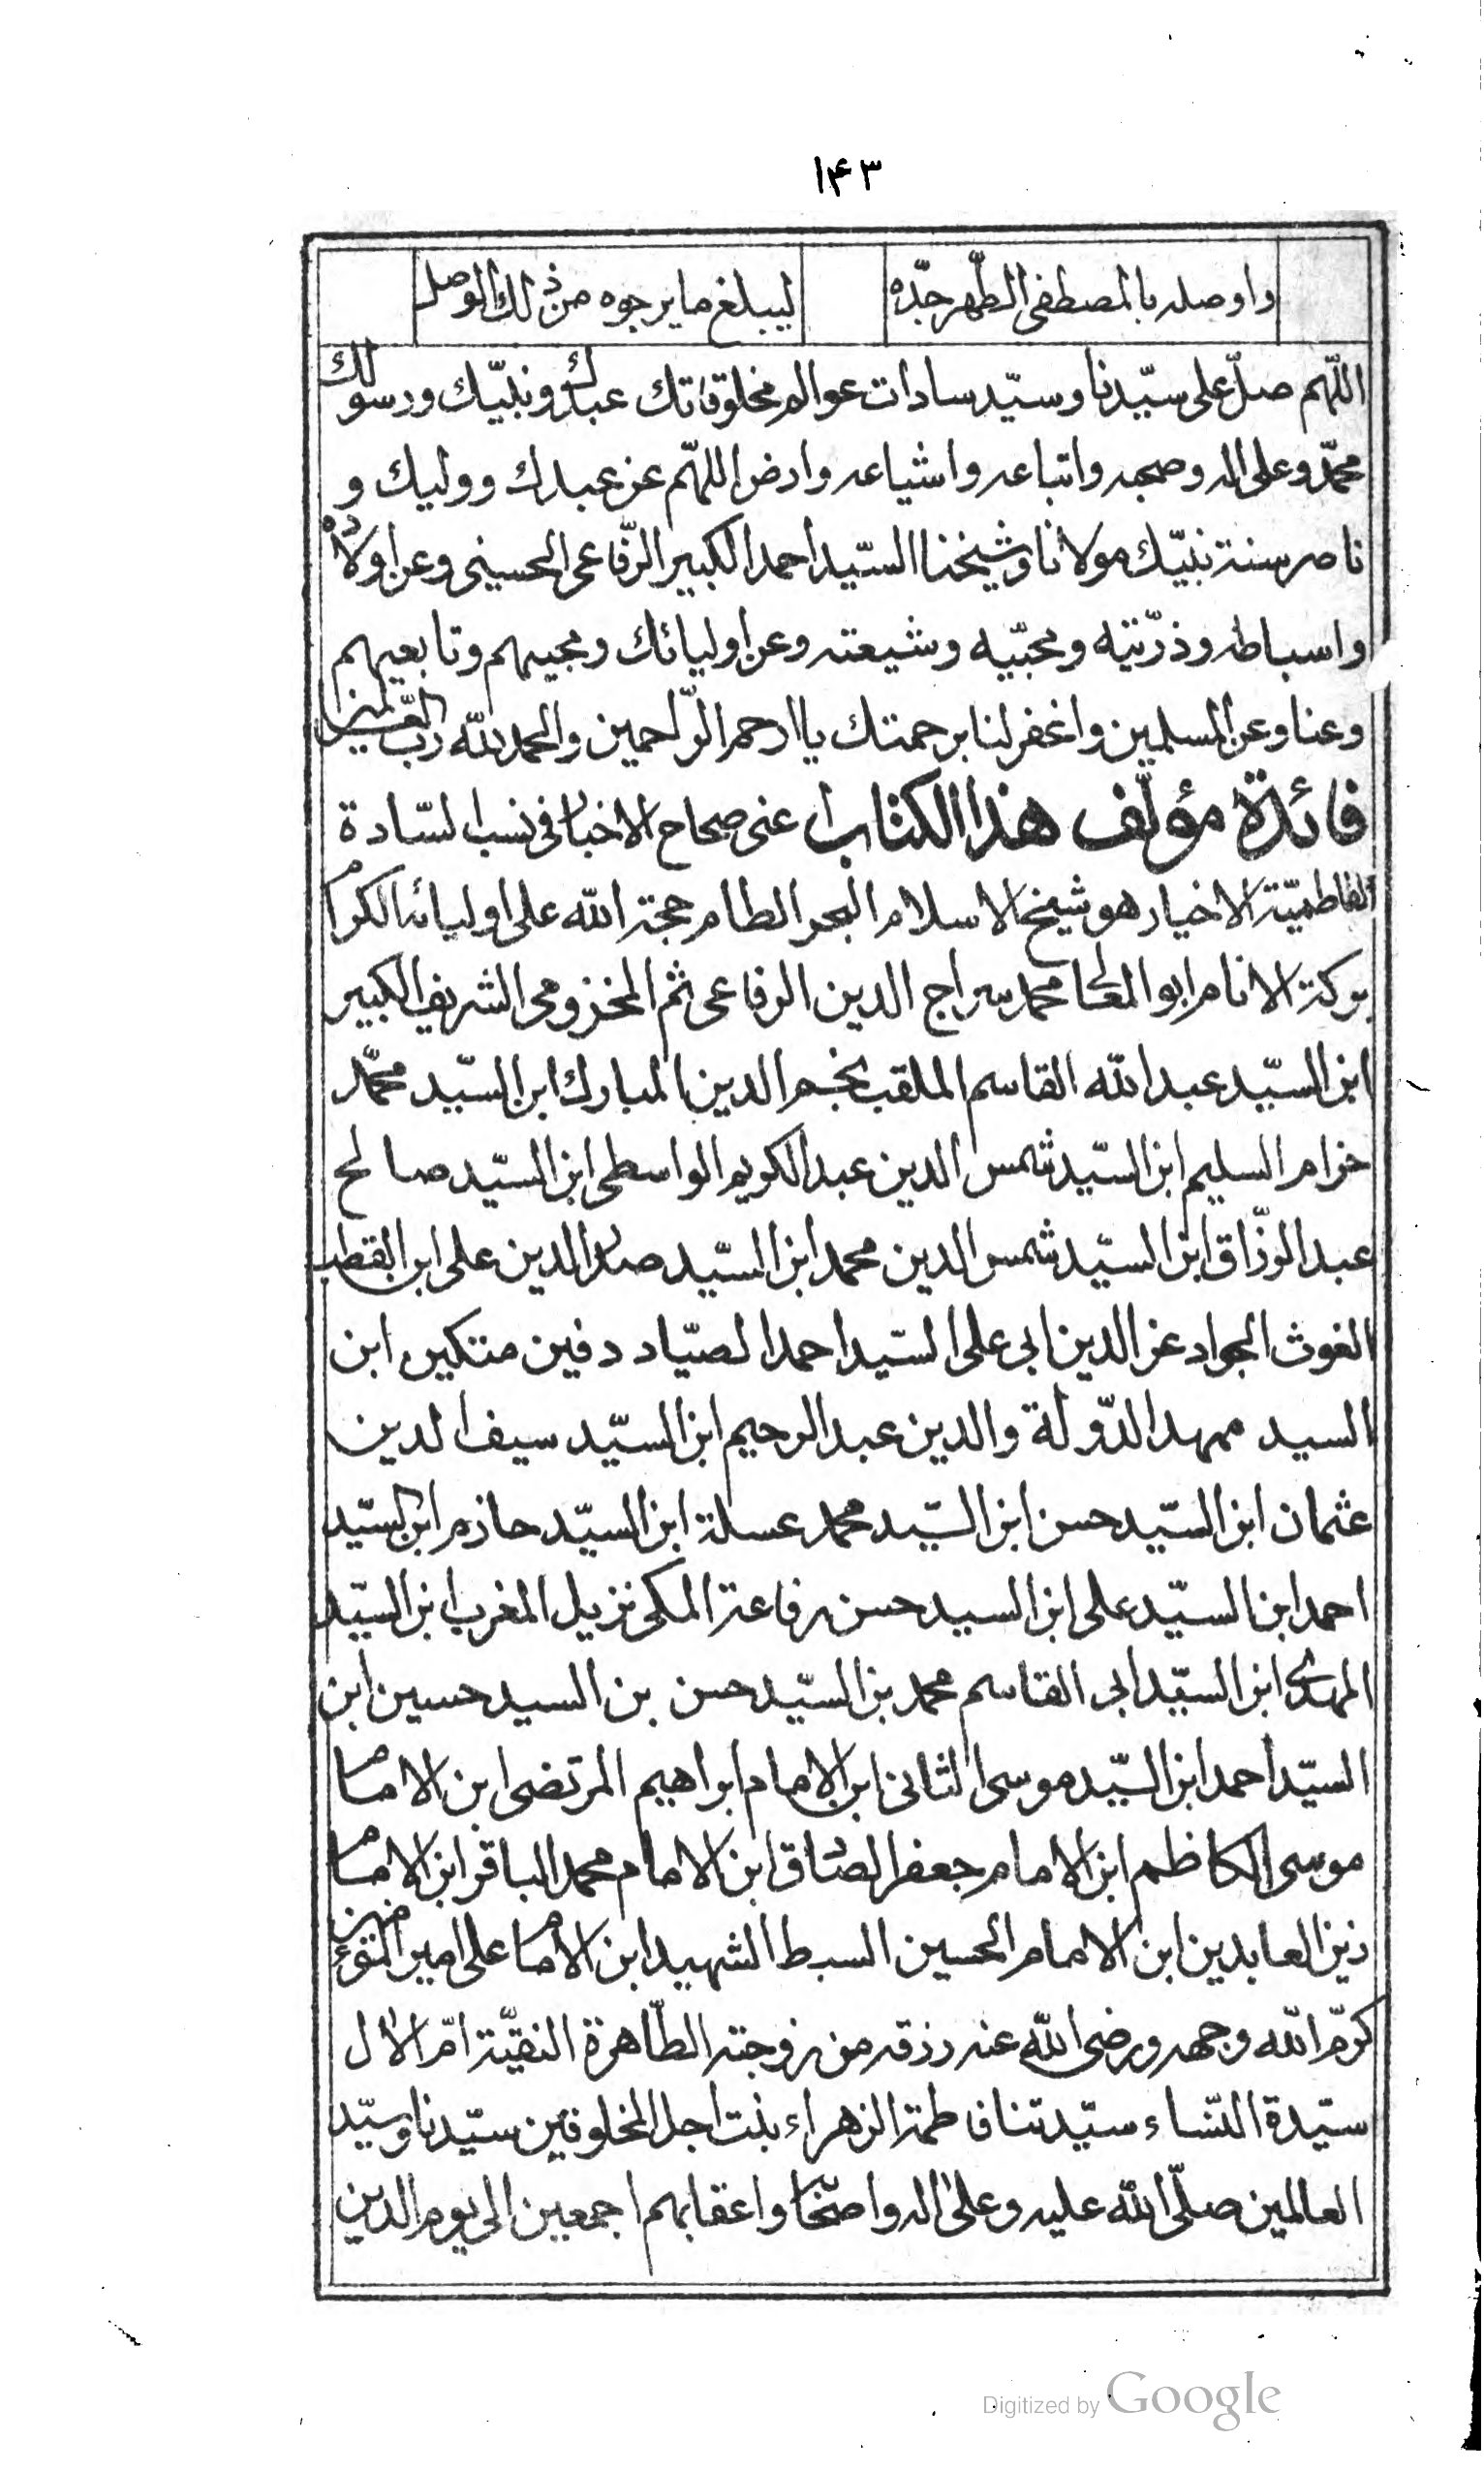 ١۴٣
واوصله بالمصطفى الطّهر جدّه ليبلغ ما يرجوه من ذلك الوصل
اللّهم صلّ على سيّدنا وسيّد سادات عوالم مخلوقاتك عبدك ونبيّك ورسولك
محمّد وعلى اله وصحبه واتباعه واشياعه وارض اللهّم عن عبدك ووليك و
ناصر سنة نبيّك مولانا وشيخنا السّيد احمد الكبير الرّفاعى الحسينى وعن اولاده
واسباطه وذرّيّته ومحبّيه وشيعته وعن اوليائك ومحبيهم وتابعيهم
وعنا وعن المسلمين واغفر لنا برحمتك يا ارحم الرّاحمين والحمد للّه ربّ العالمين
فائدة مؤلّف هذا الكتاب اعنى صحاح الاخبار فى نسب السّادة
الفاطميّة الاخيار هو شيخ الاسلام البحر الطام حجة اللّه على اوليائه الكرام
بركة الانام ابو المعالى محمد سراج الدين الرفاعى ثم المخزومى الشريف الكبير
ابن السّيد عبد اللّه القاسم الملقب بنجم الدين المبارك ابن السّيد محمّد
خزام السليم ابن السّيد شمس الدين عبد الكريم الواسطى ابن السّيد صالح
عبد الرزّاق ابن السّيد شمس الدين محمد ابن السّيد صدر الدين على ابن القطب
الغوث الجواد عز الدين ابى على السّيد احمد الصيّاد دفين متكين ابن
السيد ممهد الدّولة والدين عبد الرحيم ابن السّيد سيف الدين
عثمان ابن السّيد حسن ابن السّيد محمد عسلة ابن السيّد حازم ابن السيّد
احمد ابن السيّد على ابن السيد حسن رفاعة المكى نزيل المغرب ابن السيّد
المهدى ابن السيّد ابى القاسم محمد بن السيّد حسن بن السيد حسين ابن
السيّد احمد ابن السيّد موسى الثانى ابن الامام ابراهيم المرتضى ابن الامام
موسى الكاظم ابن الامام جعفر الصادق ابن الامام محمد الباقر ابن الامام
زين العابدين ابن الامام الحسين السبط الشهيد ابن الامام على امير المؤمنين
كرّم اللّه وجهه ورضى اللّه عنه رزقه من زوجته الطّاهرة النقيّة امّ الال
سيّدة النّساء سيّدتنا فاطمة الزهراء بنت اجل المخلوقين سيّدنا وسيّد
العالمين صلّى اللّه عليه وعلى اله واصحابه واعقابهم اجمعين الى يوم الدين
Digitized by Google